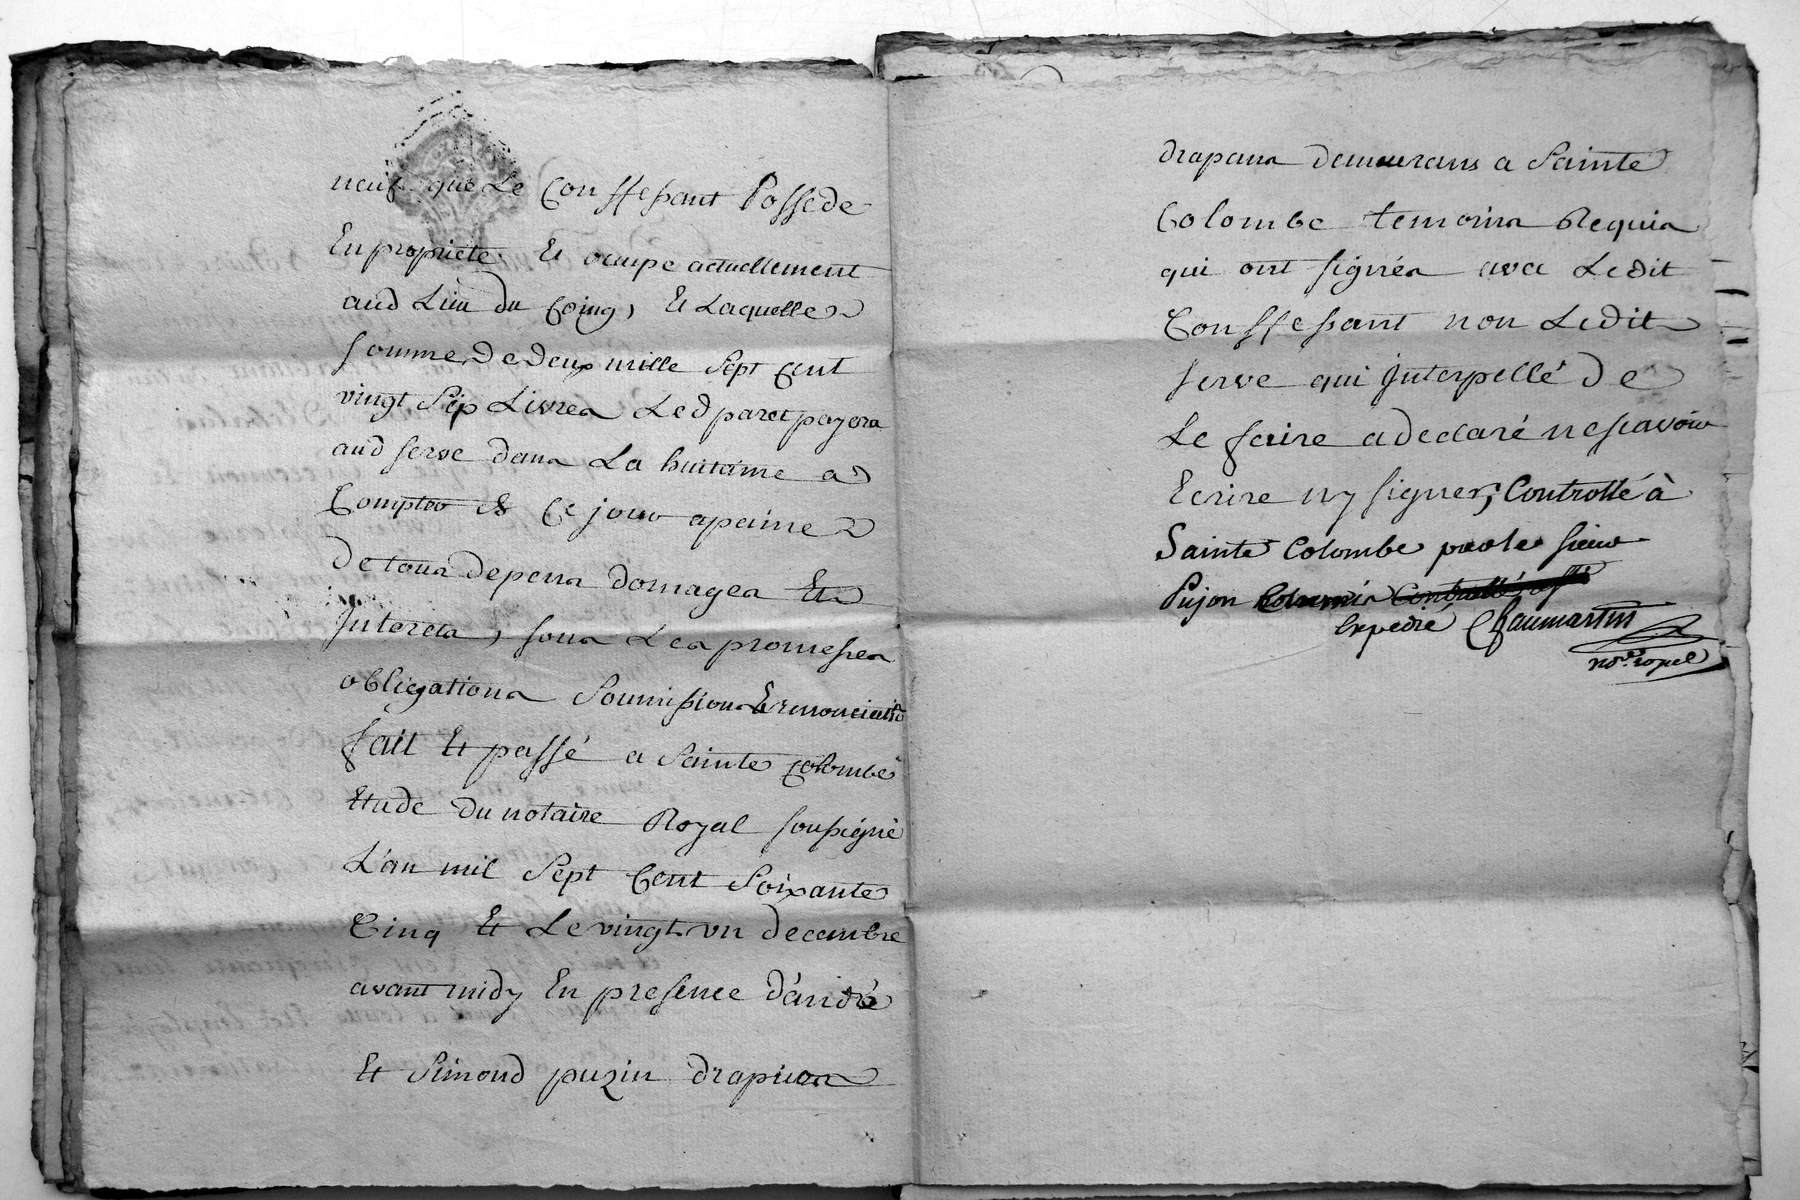 neuf que Le Conffessant Possede
En propriete Et ocupe actuellement
aud Lieu du Coing, Et Laquelle
somme de deux mille Sept Cent
vingt Sep Livres Led paret payera
aud serve dans La huitaine a
Compter de Ce jour apeine
de tous depens domages Et
Interets, sous Les promesses
obligations Soumissions & renonciatns
fait Et passé a Sainte Colombe
Etude du notaire Royal soussigné
L'an mil Sept Cent Soixante
Cinq Et Le vingt un decembre
avant midy En presence d'andré
Et Simond puzin drapiers
drapans demeurans a Sainte
Colombe temoins Requis
qui ont signés avec Ledit
Conffessant non Ledit
serve qui Interpellé de
Le faire a declaré ne scavoir
Ecrire ny signer, Controllé à
Sainte Colombe par le sieur
Pujon Commis
Expedié Chaumartin
nore. royal